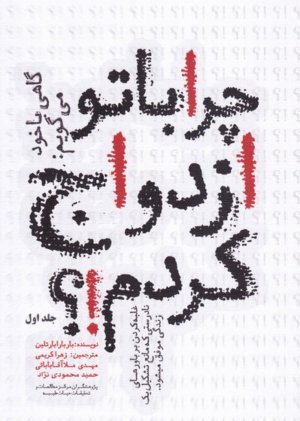 گاهی با خود
می گویم:
چرا با تو
ازدواج
کردم؟!
غلبه کردن بر باورهای
نادرستی که مانع تشکیل یک
زندگی موفق میشود.
جلد اول
نویسنده: باربارا بارتلین
مترجمین: زهرا کریمی
مهدی ملاآقابابائی
حمید محمودی نژاد
پژوهشگران مرکز مطالعات و
تحقیقات حیات طیبه